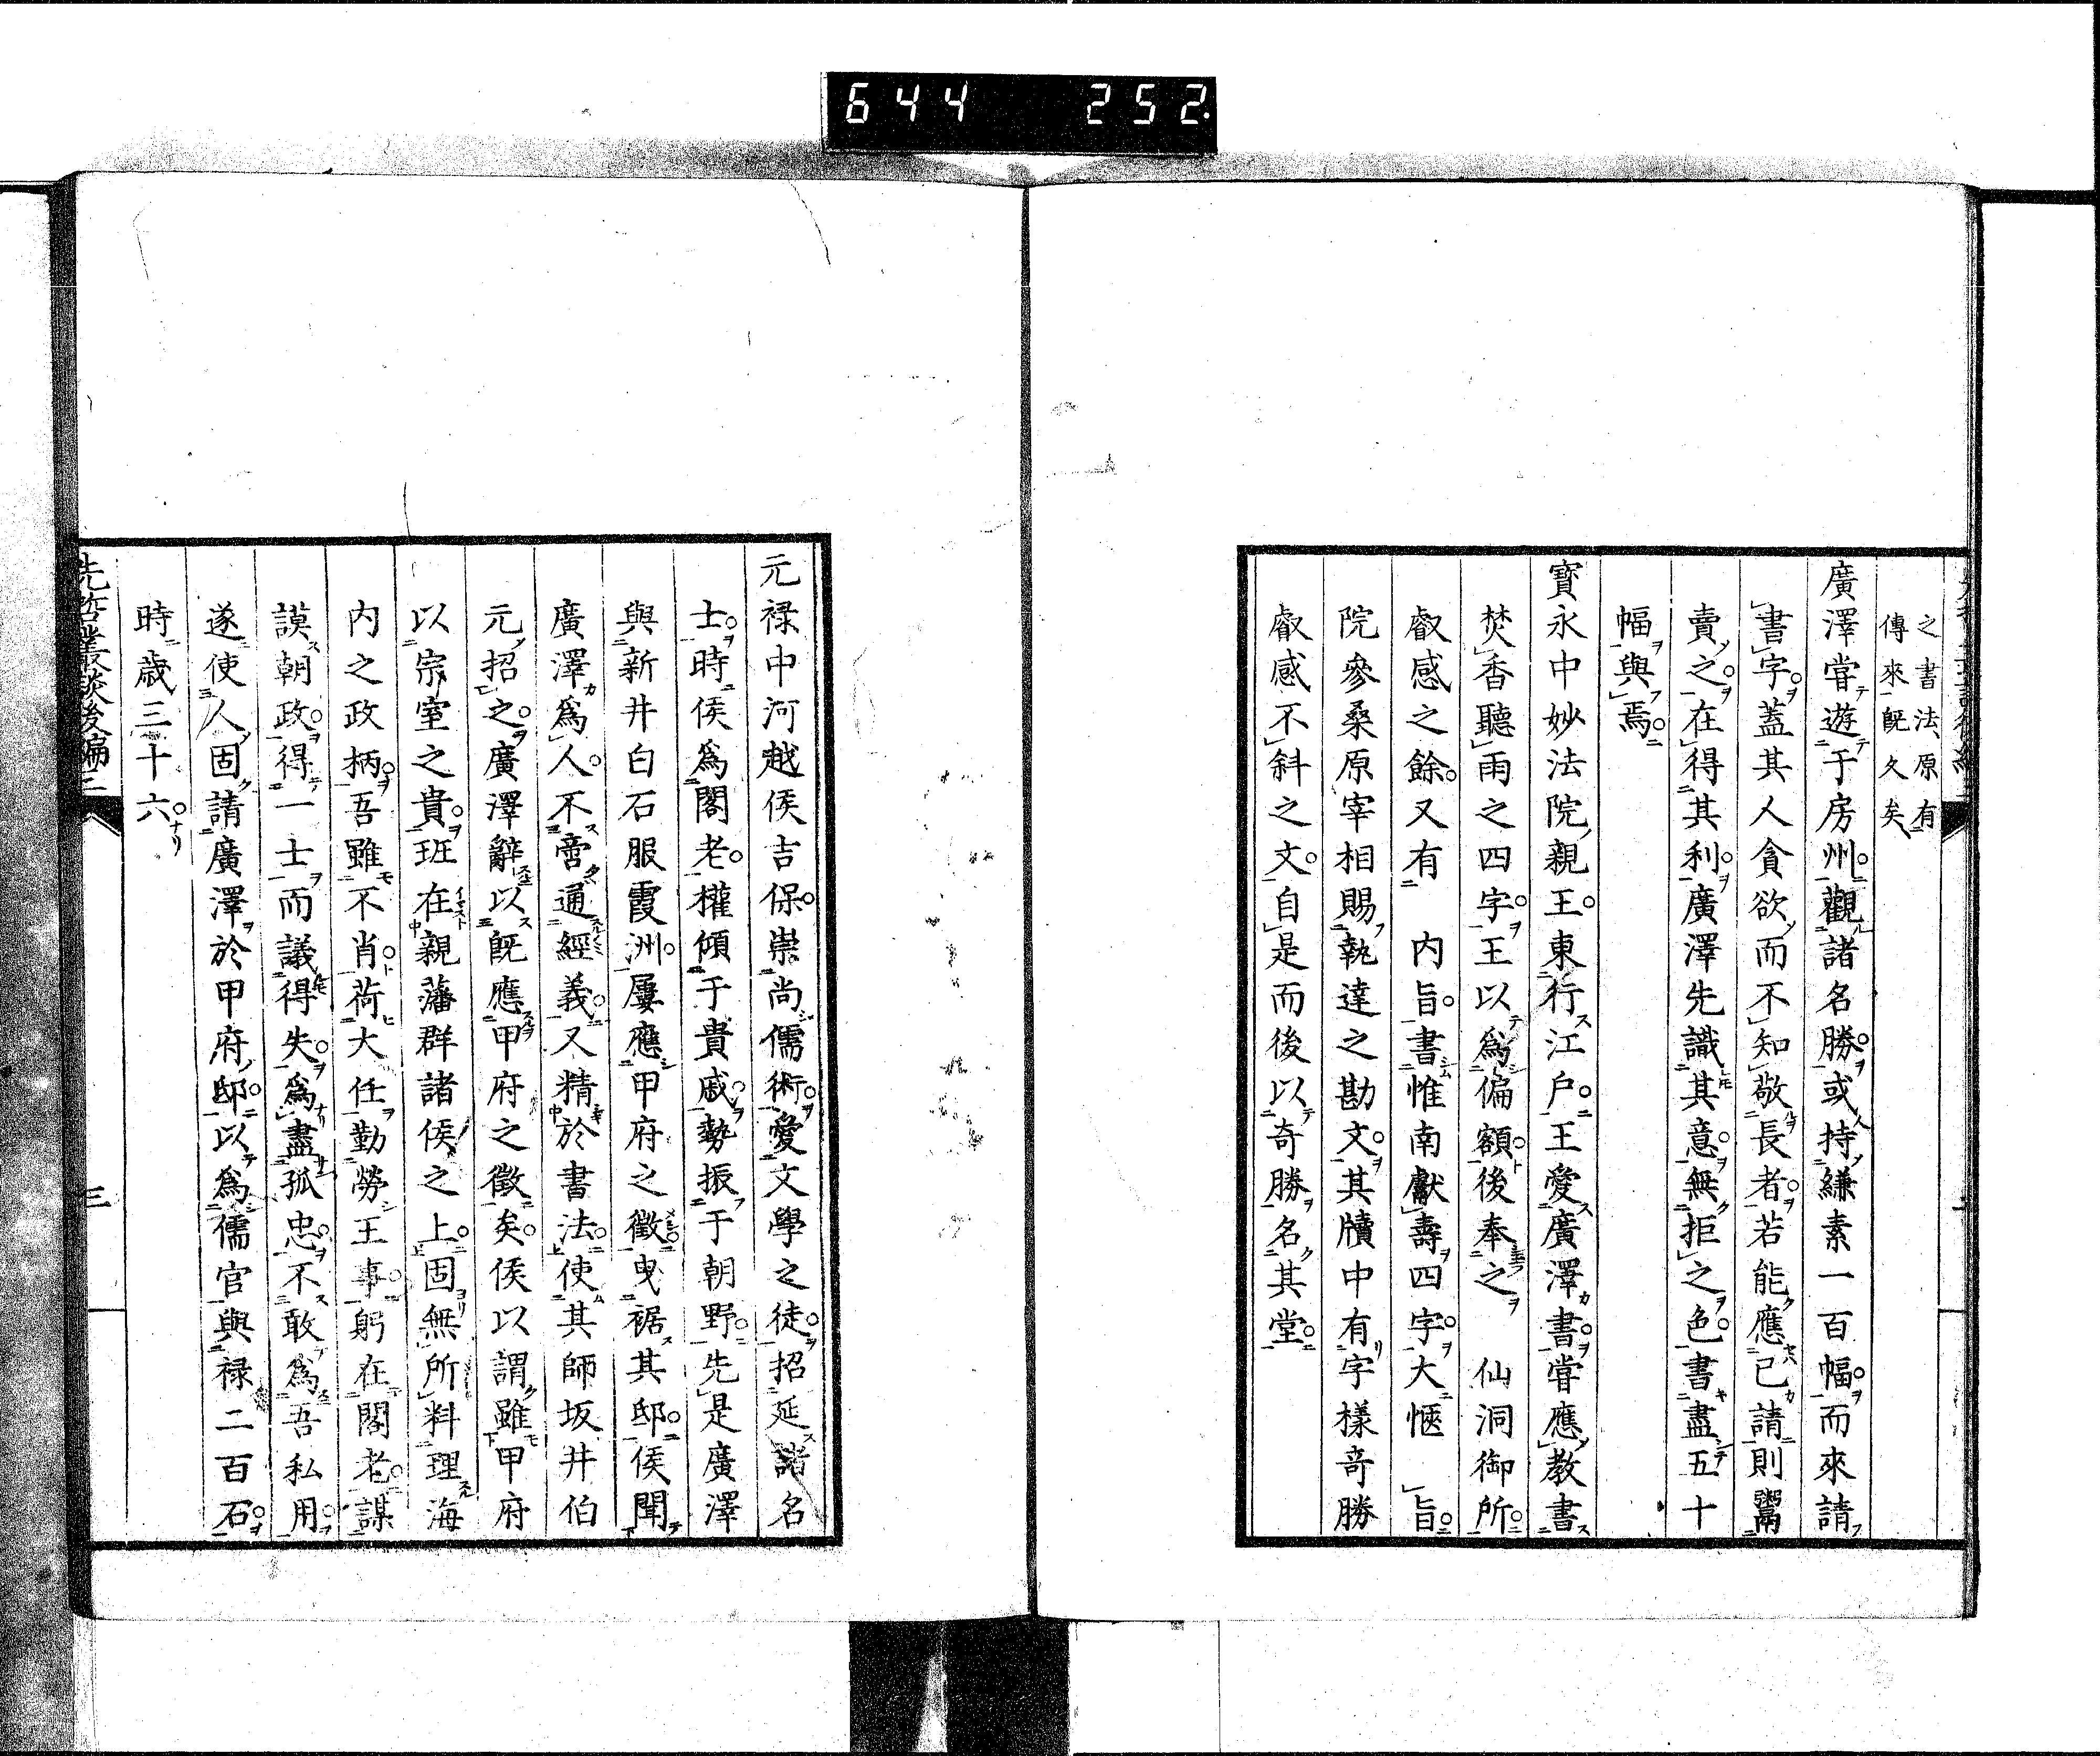 644 252.
之書法原有
傳來既久矣
廣澤嘗遊于房州觀諸名勝或持縑素一百幅而來請
書字蓋其人貪欲而不知敬長者若能應己請則鬻
賣之在得其利廣澤先識其意無拒之色書盡五十
幅與焉
寳永中妙法院親王東行江戸王愛廣澤書嘗應教書
焚香聽雨之四字王以爲偏額後奉之 仙洞御所
叡感之餘又有 内旨書惟南獻壽四字大愜 旨
院參桑原宰相賜執達之勘文其牘中有字樣奇勝
叡感不斜之文自是而後以奇勝名其堂
元禄中河越侯吉保崇尚儒術愛文學之徒招延諸名
士時侯爲閣老權傾于貴戚勢振于朝野先是廣澤
與新井白石服霞洲屢應甲府之徵曳裾其邸侯聞
廣澤爲人不啻通經義又精於書法使其師坂井伯
元招之廣澤辭以既應甲府之徵矣侯以謂雖甲府
以宗室之貴班在親藩群諸侯之上固無所料理海
内之政柄吾雖不肖荷大任勤勞王事躬在閣老謀
謨朝政得一士而議得失爲盡孤忠不敢爲吾私用
遂使人固請廣澤於甲府邸以爲儒官與禄二百石
時歳三十六
先哲叢談後編三
三